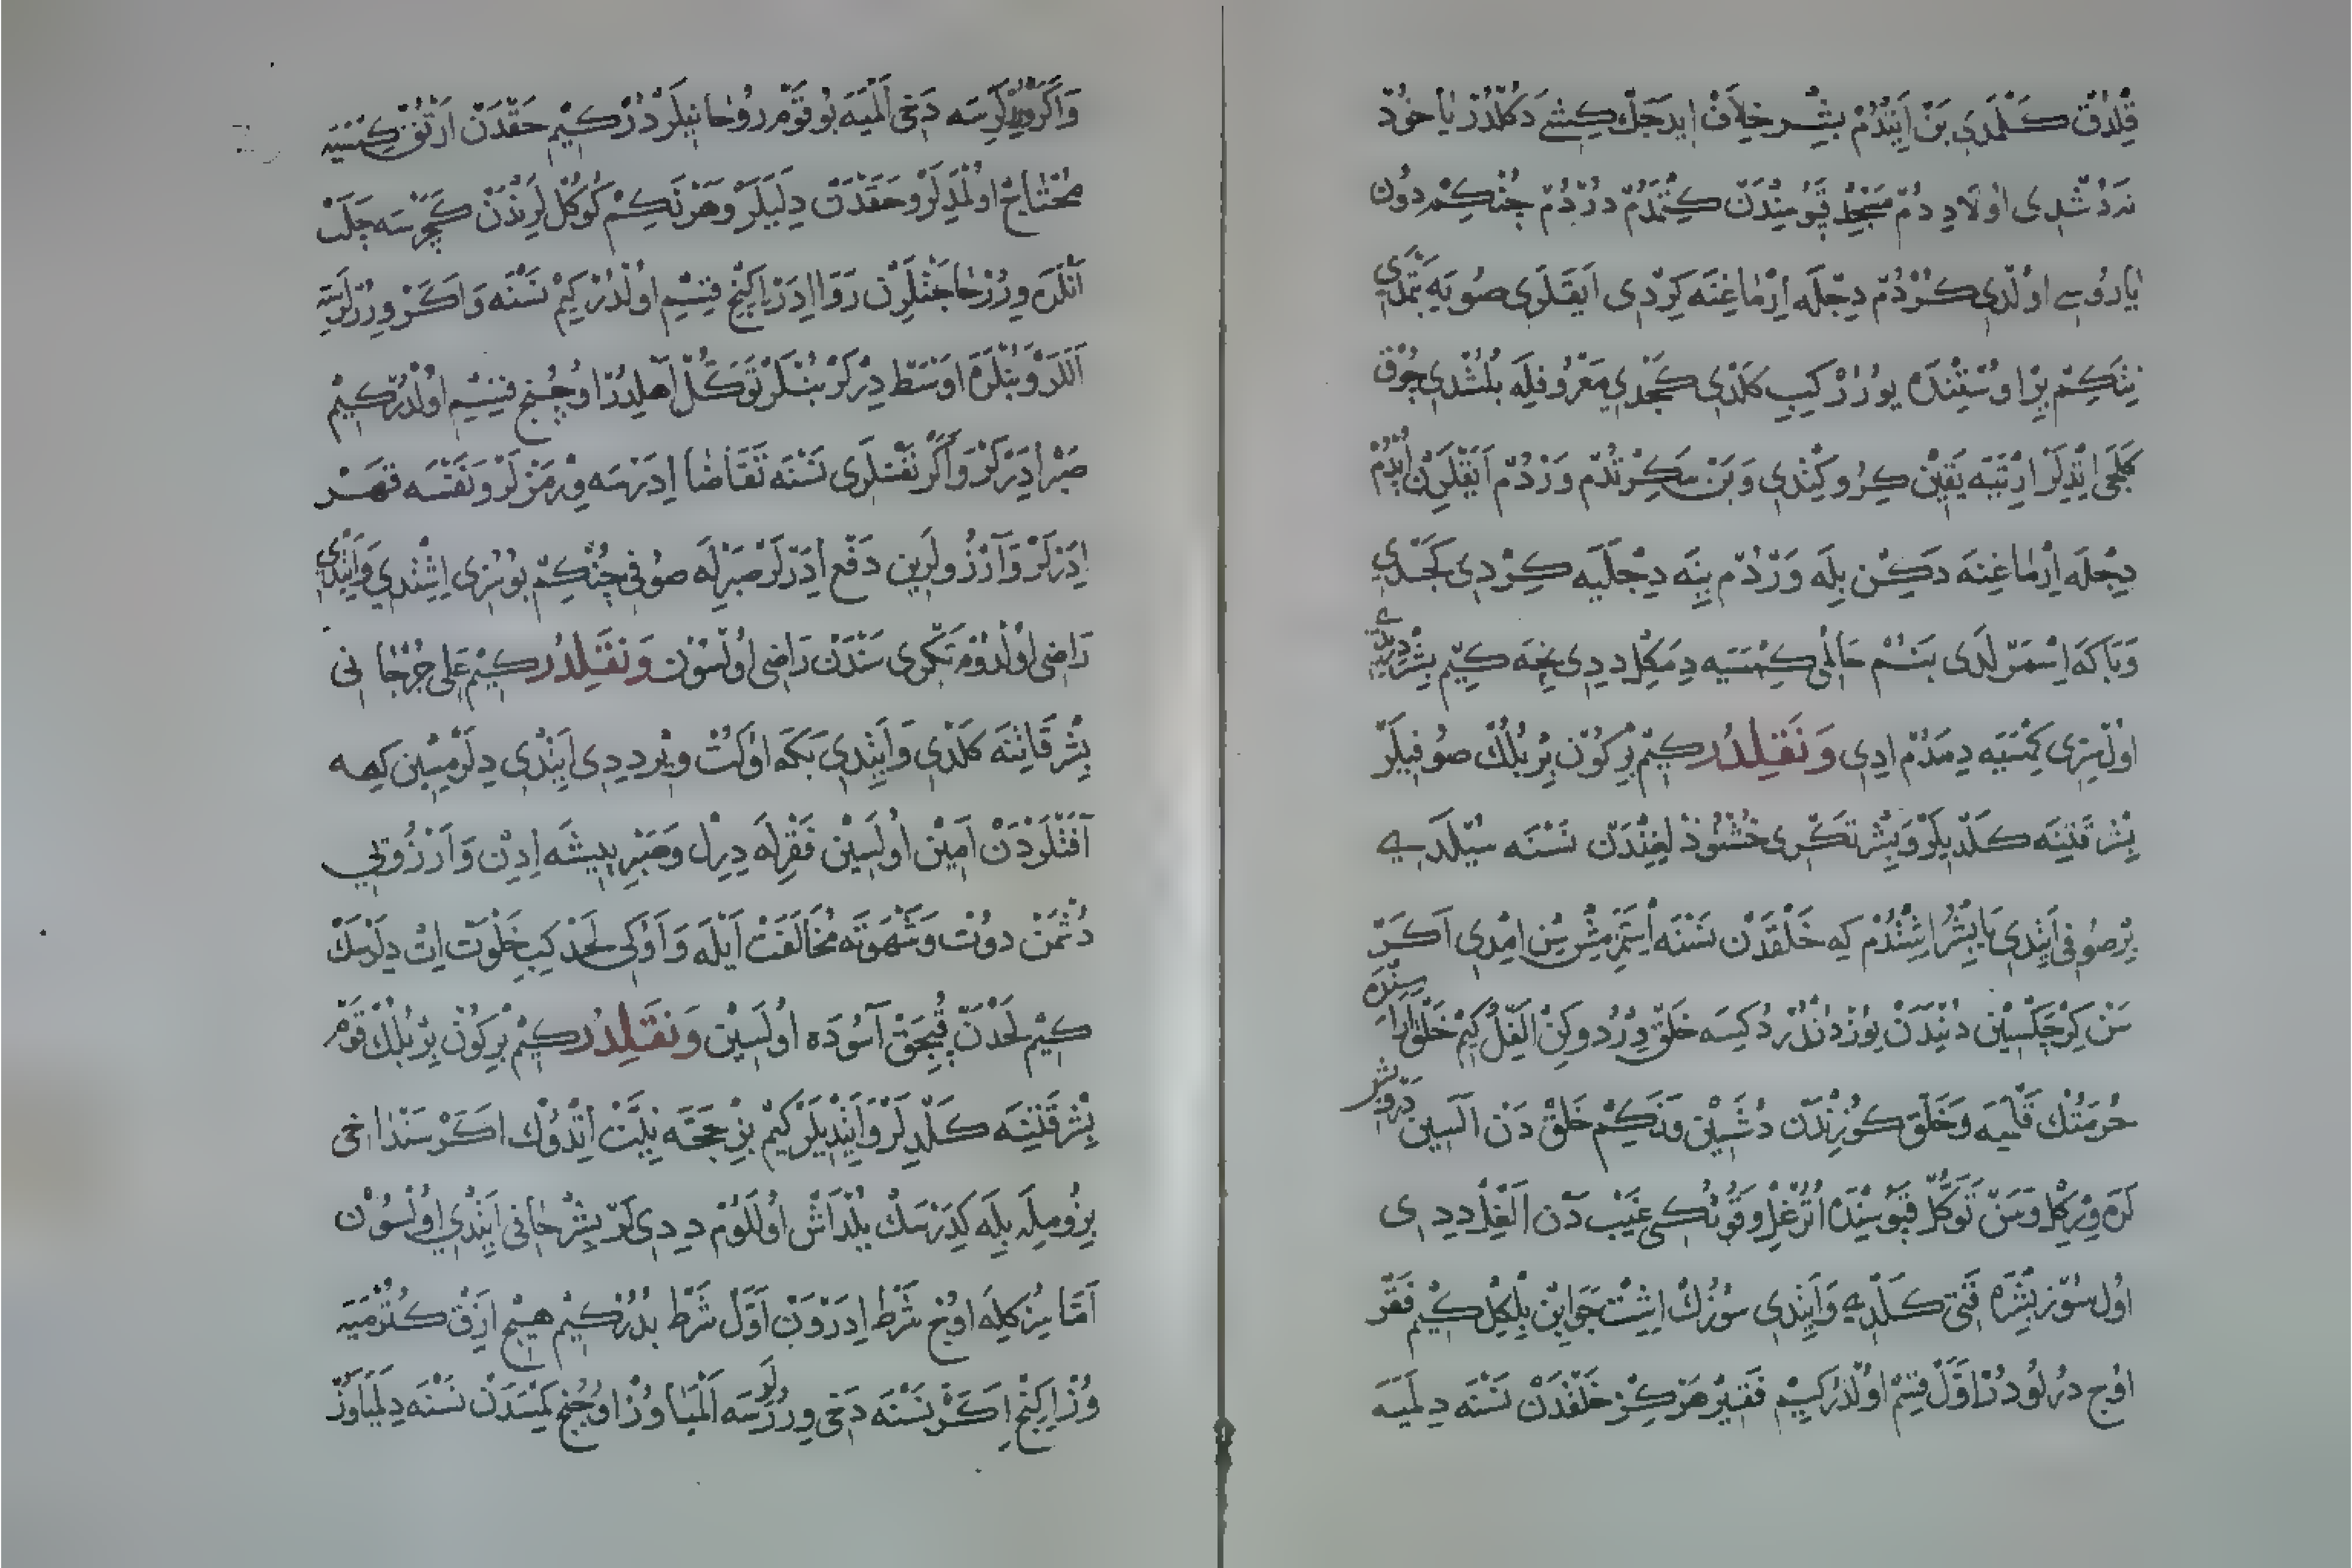 قلدق كلمدی بن ايتدم بشر خلاف ايدجك كشی دكلدر يا خود
نه دشدی اولادی دم مسجد قپوسندن كتمدم دردم چنكم دون
ياروسی اولدی كردم دجله ارماغنه كردی ايقلری صويه بتمدی
نتكم ير اوستنده يورر كيب كلدی كچدی معروفله بلشدی چوق
كلجی اتديلر ارتيه يقين كرو كتدی و بن سكرتدم وردم ايقلرن اپدم
دجله ارماغنه دكن بله وردم ينه دجليه كردی كچدی
و باكه اسمرلدی بنم حالمی كمسيه دمكل ددی نجه كيم بشر دريدی
اول سری كمسيه دمدم ادی و نقلدر كيم بر كون بر بلك صوفيلر
بشر قتنه كلديلر و بشر تكری خشنوذلغندن نسنه سيلدی
بر صوفی ايتدی يا بشر اشتدم كه خلقدن نسنه استمزمشسن امدی اكر
سن كرچكسين دنيدن يوز دندردكسه خلق ويردوكن الغل كيم خلق اراسنده
حرمتك قلميه و خلق كوزندن دشسين و نكم خلق دن السين درويش
لره ويركل و سن توكل قپوسنده اترغل و قوتكی غيب دن الغل ددی
اول سوز بشره قتی كلدی و ايتدی سوزك اشت جوابن بلكل كيم فقر
اوچ درلودر اول قسم اولدر كيم فقير هركز خلقدن نسنه دلميه
و اكر ويررلرسه دخی المیه بو قوم روحانيلردر كيم حقدن ارتق كمسيه
محتاج اولمديلر و حقدن دليلر و هر نكم كوكل لرندن كچرسه چلب
انلره ويرر حاجتلرن روا ادر ايكنج قسم اولدر كيم نسنه و اكر ويررلرسه
اللر و بنلره اوسط ديرلر بنلر توكل اهلدر اوچنج قسم اولدر كيم
صبر ادرلر و اكر نفسلری نسنه تقاضا ادرسه ويرمزلر و نفسه قهر
ادرلر و آرزولرين دفع ادرلر صبرله صوفی چنكم بو سزی اشتدی و ايتدی
راضی اولدوم تكری سندن راضی اولسون و نقلدر كيم علی جرجانی
بشر قاتنه كلدی و ايتدی بكه اوكت وير ددی ايتدی دلرميسين كه
آفتلردن امين اولسين فقرله درل و صبر پيشه ادن و ارزويی
دشمن دوت و شهوته مخالفت ايله و اوكی لحد كيب خلوت ات دلرسك
كيم لحدن چقيجق آسوده اولسين و نقلدر كيم بر كون بر بلك قوم
بشر قتنه كلديلر و ايتديلر كيم بز حجه نيت اتدوك اكر سنداخی
بزومله بله كدرسك يلداش اوللوم ددیلر بشر حافی ايتدی اولسون
اما سزكله اوچ شرط ادرون اول شرط بدر كيم هيچ ازق كترميه
وز ايكنج اكر نسنه دخی ويررلرسه المیاوز اوچنج كمسدن نسنه دلمياوز